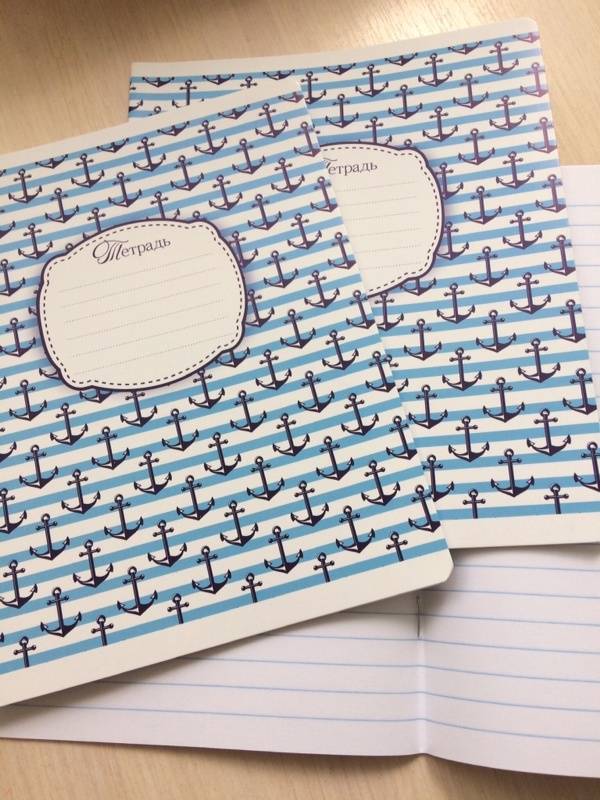 Тетрадь
Тетрадь